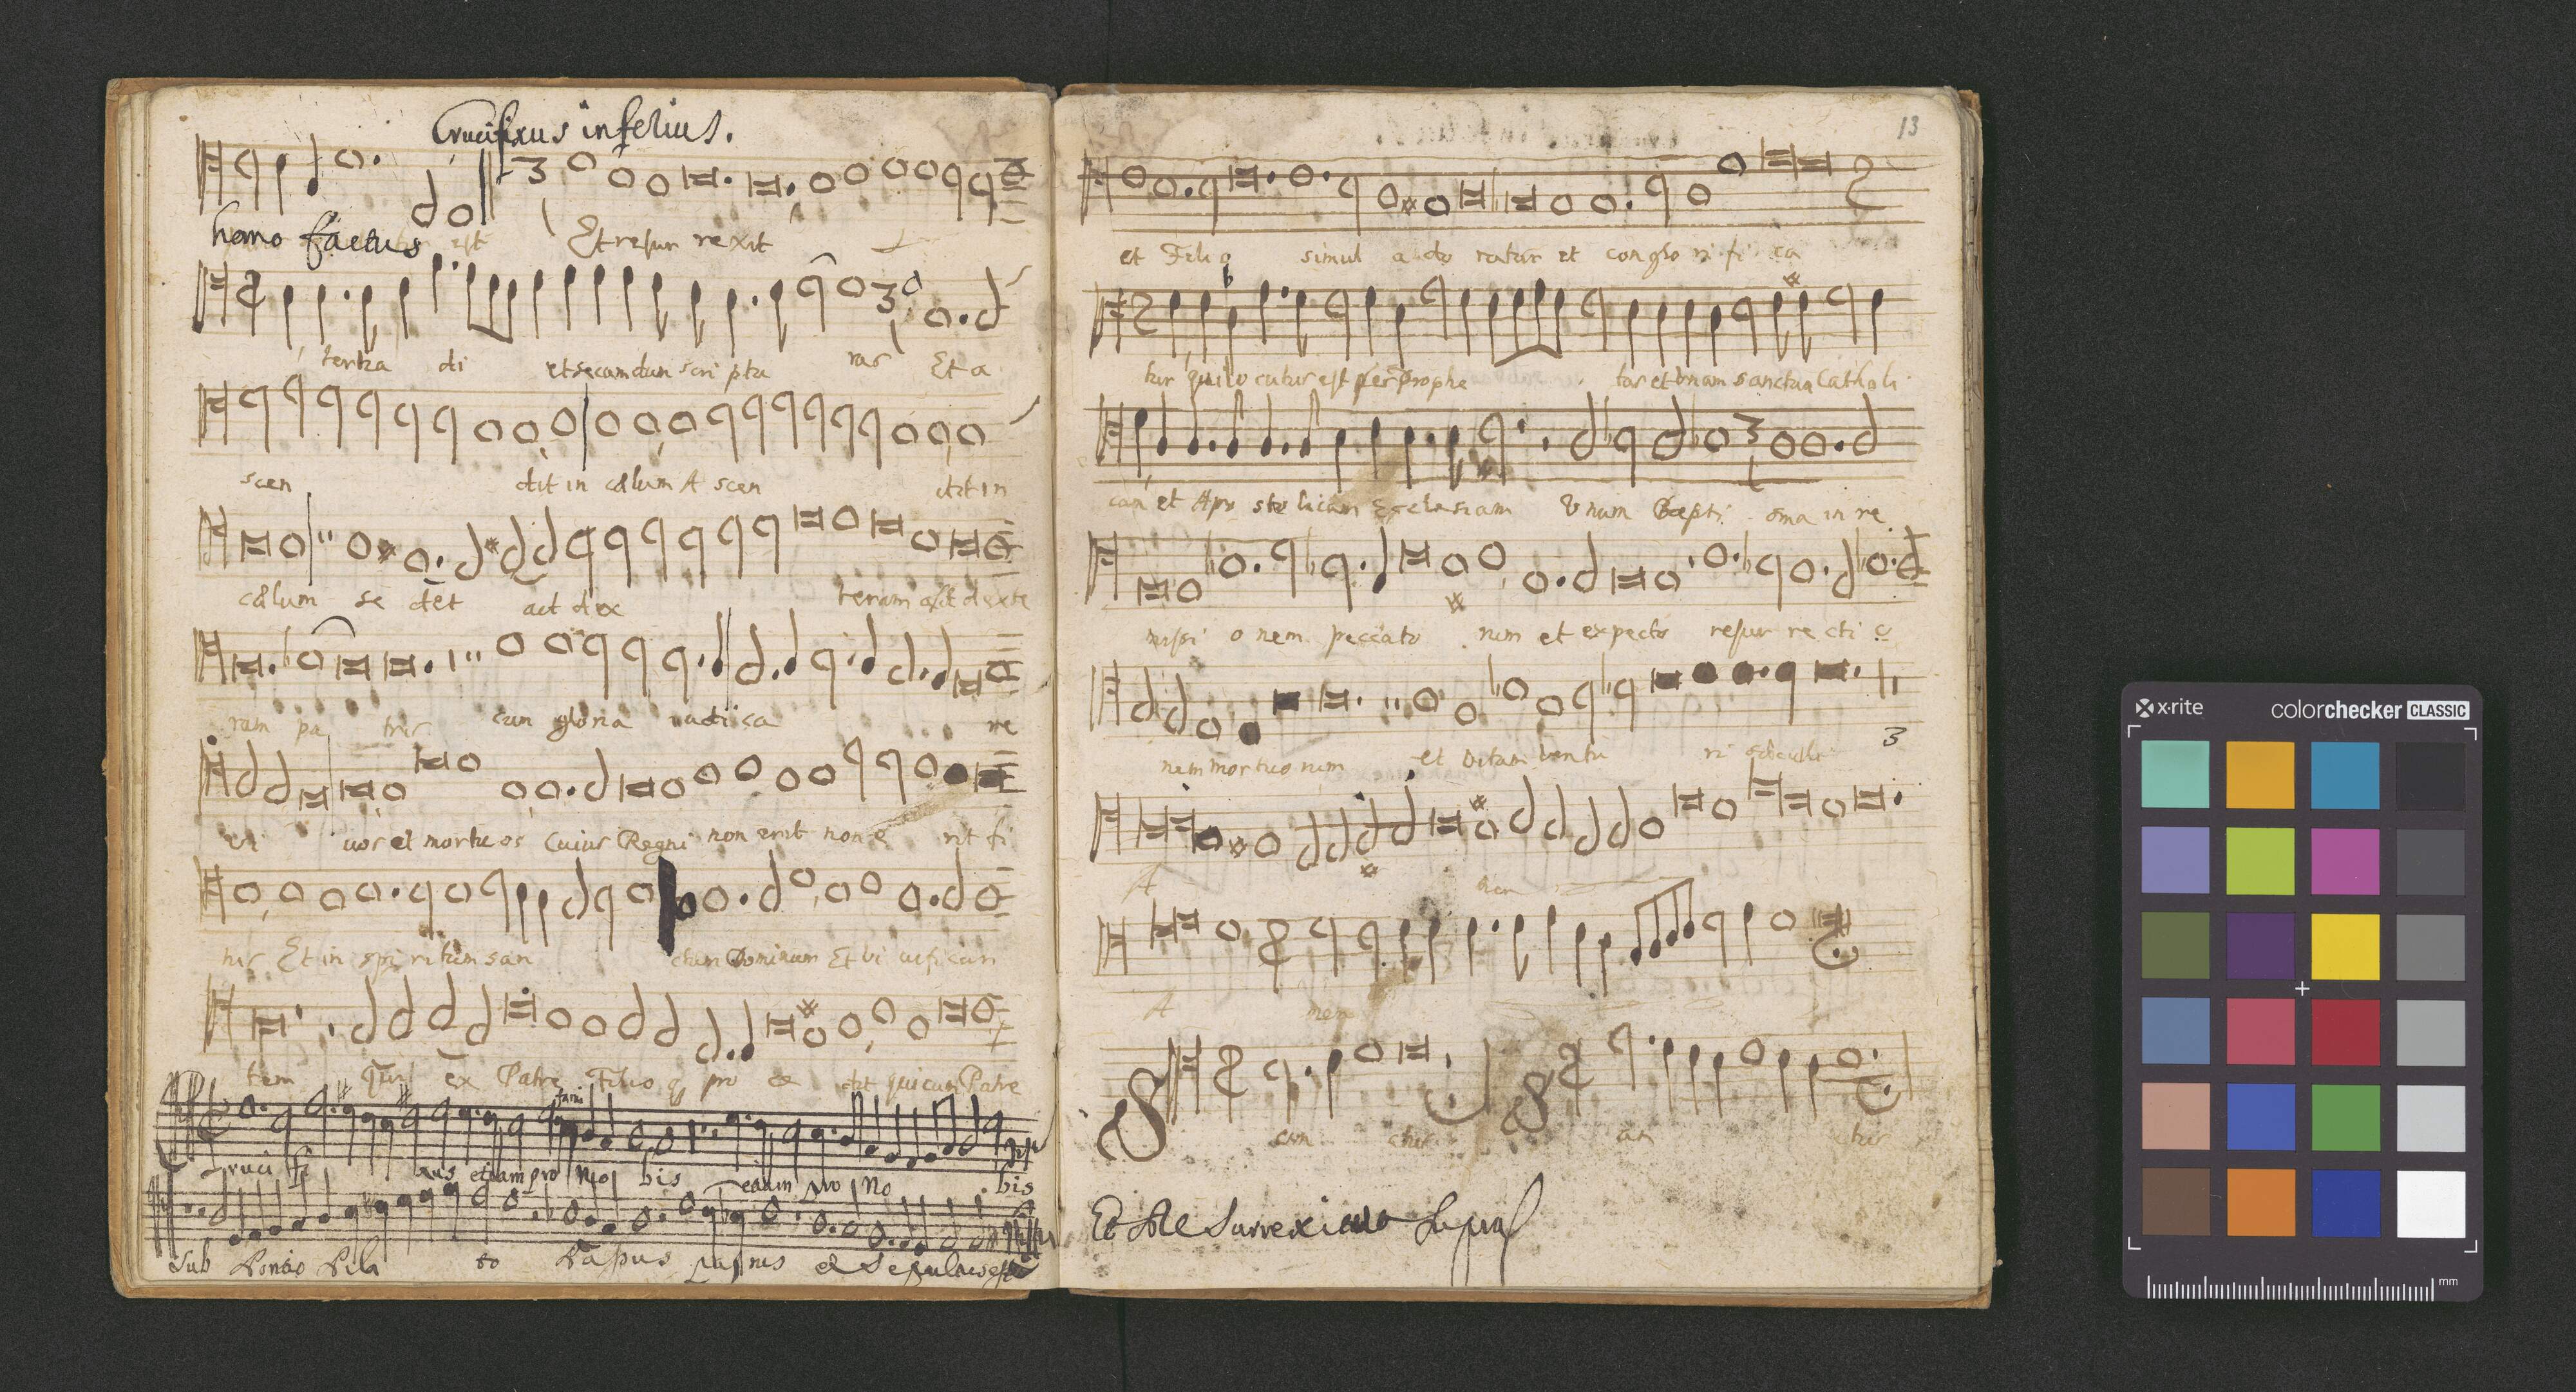 Crucifixus inferius.
homo factus est Et resur rexit
tertia di et secundun scri ptu ras Et a
scen dit in cælum A scen dit in
cælum se det act dex teram act dexte
ram pa tris cun gloria iudi ca re
vi uos et mortuos Cuius Regni non erit non e rit fi
nis Et in spi ritum san ctum Dominum Et vi uifican
tem Qui ex Patre Filio q pro ce dit qui cum Patre
Cruci fi xus etiam pro No bis etiam pro No bis
Sub Pontio Pila to Passus passus et Sepultus est
13
et Filio simul a do ratur et conglo ri fi ca
tur qui lo cutus est per Prophe tas et Vnam sanctam Catholi
can et Apo sto licam Ecclesiam Vnum Bapti sma in re
missi o nem peccato rum et expecto resur re cti o
nem mortuo rum et vitam ventu ri
3
A men
A men
San ctus san ctus
Et Resurrexi
x·rite
colorchecker CLASSIC
mm